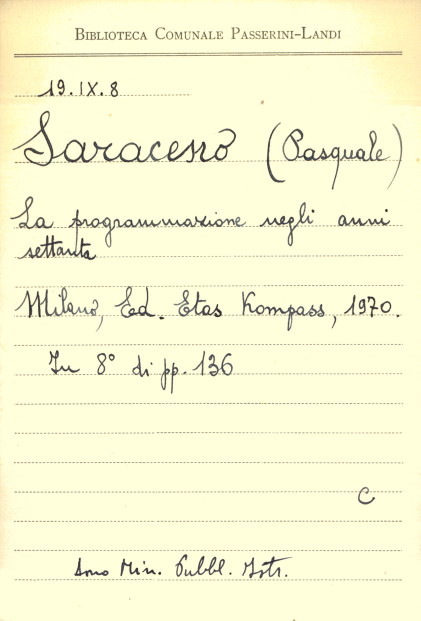 BIBLIOTECA COMUNALE PASSERINI-LANDI
19.IX.8
Saraceno (Pasquale)
La programmazione negli anni
settanta
Milano, Ed. Etas Kompass, 1970.
In 8° di pp. 136
C
Dono Min. Pubbl. Istr.